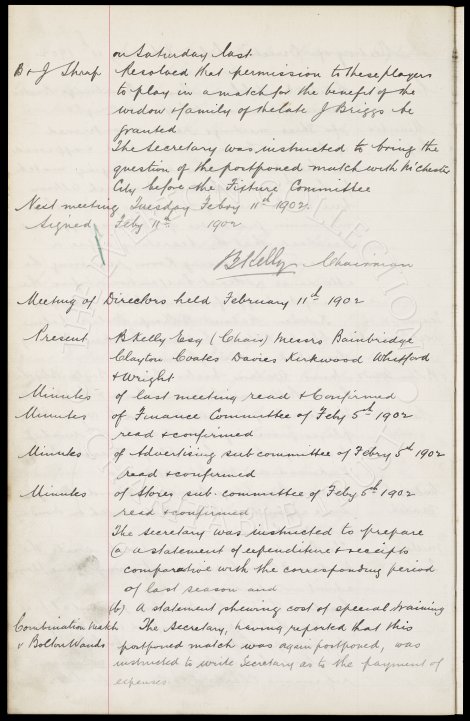 on Saturday last.
B & J Sharp Resolved that permission to these players
to play in a match for the benefit of the
widow & family of the late J Briggs be
granted
The Secretary was instructed to bring the
question of the postponed match with M'Chester
City before the Fixture Committee
Next meeting Tuesday Febry 11th 1902.
Signed Feby 11th 1902
B Kelly Chairman
Meeting of Directors held February 11th 1902
Present B Kelly Esq (Chair) Messrs Bainbridge
Clayton Coates Davies Kirkwood Whitford
& Wright
Minutes of last meeting read & Confirmed
Minutes of Finance Committee of Feby 5th 1902
read & confirmed
Minutes of Advertising sub committee of Febry 5th 1902
read & confirmed
Minutes of Stores sub-committee of Feby 6th 1902
read & confirmed
The Secretary was instructed to prepare
(a) a statement of expenditure & receipts
comparative with the corresponding period
of last season and
(b) A statement shewing cost of special training
Combination Match The Secretary, having reported that this
v Bolton Wands postponed match was again postponed, was
instructed to write Secretary as to the payment of
expenses